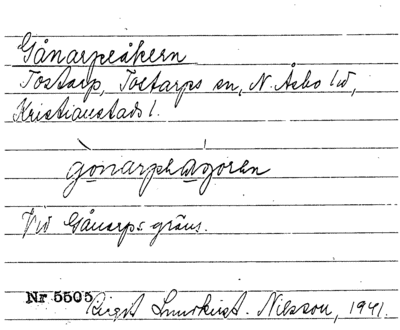 Gånarpeåkern
Tostarp, Tostarps sn, N. Åsbo hd,
Kristianstads l.
gònarpeágoren
Vid Gånarps gräns.
Nr 5505 Birgit Lundkvist-Nilsson, 1941.